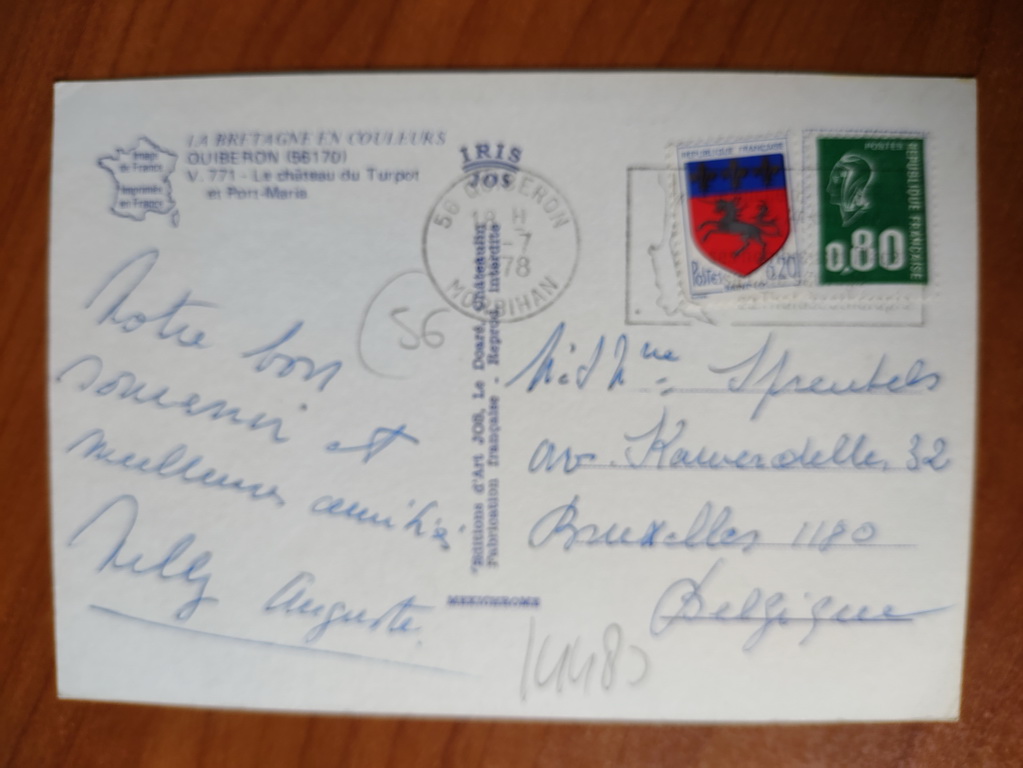 LA BRETAGNE EN COULEURS
QUIBERON (56170)
V. 771 - Le château du Turpot
et Port-Maria
Image
de France
Imprimée
en France
IRIS
JOS
56 QUIBERON
18 H
-7
1978
MORBIHAN
REPUBLIQUE FRANÇAISE
Postes
0,20
POSTES
REPUBLIQUE FRANÇAISE
0,80
56
Notre bon
souvenir et
meilleures amitiés
Nelly Auguste.
Editions d'Art JOS, Le Doaré, Chateaulin
Fabrication française - Reprod. interdite
MEXICHROME
M. et Mme
av. 32
Bruxelles 1180
Belgique